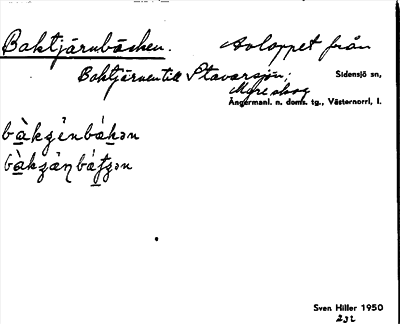 Baktjärnbäcken. Avloppet från
Baktjärnen till Stavarsjön;
Sidensjö sn,
Myreskog
Ångermanl. n. doms. tg., Västernorrl. l.
Sven Hiller 1950
232